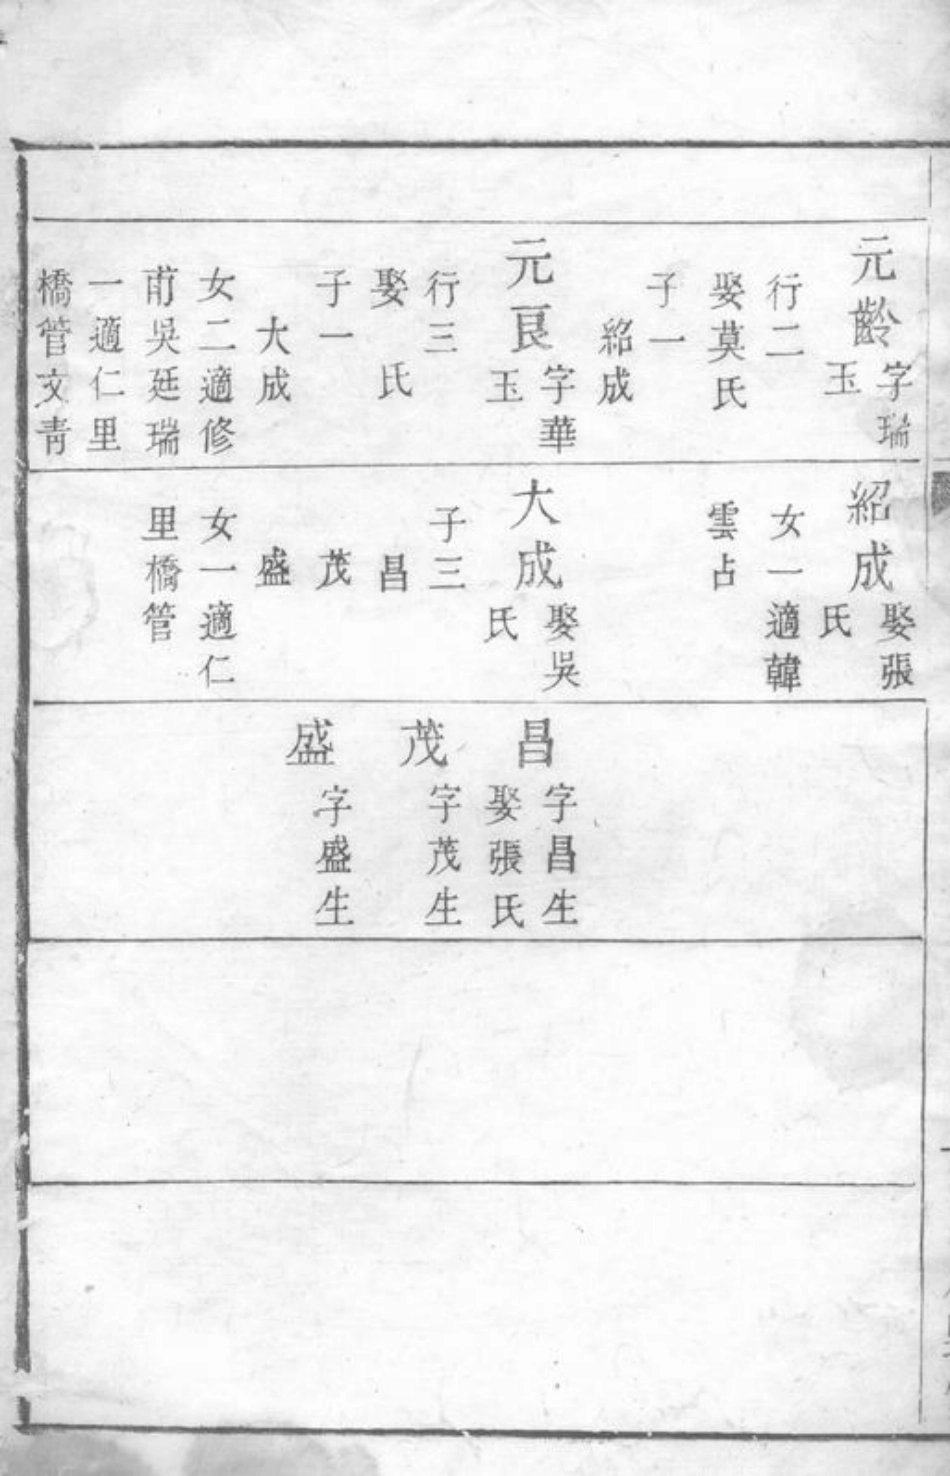 元齡
字瑞
玉
行二
娶莫氏
子一
紹成
元良
字華
玉
行三
娶　氏
子一
大成
女二適修
莭吳廷瑞
一適仁里
橋管文靑
紹成
娶張
氏
女一適韓
雲占
大成
娶吳
氏
子三
昌
茂
盛
女一適仁
里橋管
昌
字昌生
娶張氏
茂
字茂生
盛
字盛生